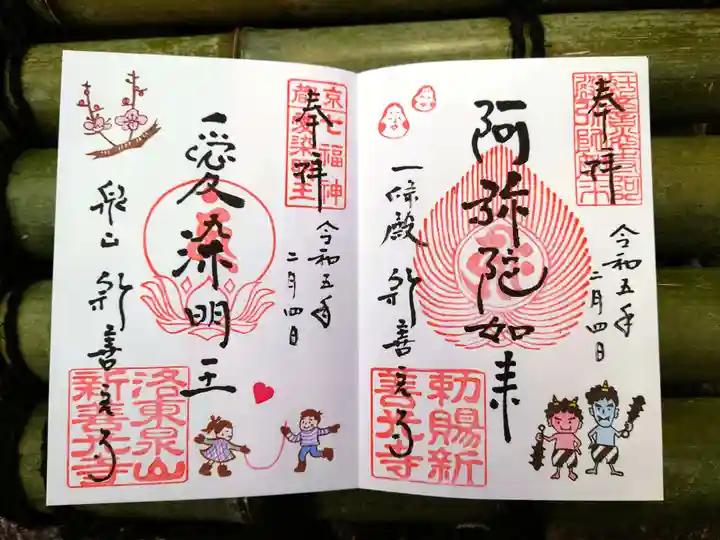 奉拝
令和五年
二月四日
阿弥陀如来
一条殿 新善光寺
勅賜新
善光寺
奉拝
京七福神
令和五年
二月四日
愛染明王
泉山 新善光寺
洛東泉山
新善光寺